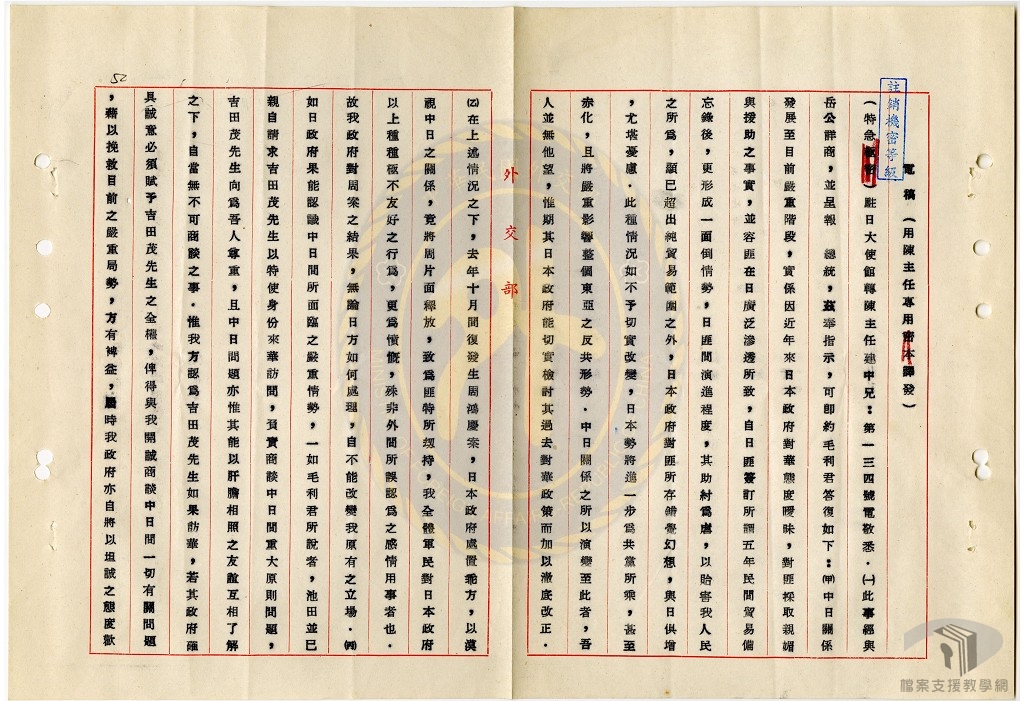 註銷機密等級
電稿（用陳主任專用密本譯發）
（特急）駐日大使館轉陳主任建中兄：第一三四號電敬悉．㈠此事經與
岳公詳商，並呈報　總統，茲奉指示，可即約毛利君答復如下：㈠中日關係
發展至目前嚴重階段，實係因近年來日本政府對華態度曖昧，對匪採取親媚
與援助之事實，並容匪在日廣泛滲透所致，自日匪簽訂所謂五年民間貿易備
忘錄後，更形成一面倒情勢，日匪間演進程度，其助紂爲虐，以貽害我人民
之所爲，顯已超出純貿易範圍之外，日本政府對匪所存錯覺幻想，與日俱增
，尤堪憂慮．此種情況如不予切實改變，日本勢將進一步爲共黨所乘，甚至
赤化，且將嚴重影響整個東亞之反共形勢．中日關係之所以演變至此者，吾
人並無他望，惟期其日本政府能切實檢討其過去對華政策而加以澈底改正．
外交部
㈡在上述情況之下，去年十月間復發生周鴻慶案，日本政府處置乖方，以漠
視中日之關係，竟將周片面釋放，致爲匪特所刼持，我全體軍民對日本政府
以上種種極不友好之行爲，更爲憤慨，殊非外間所誤認爲之感情用事者也．
故我政府對周案之結果，無論日方如何處理，自不能改變我原有之立場．㈣
如日政府果能認識中日間所面臨之嚴重情勢，一如毛利君所說者，池田並已
親自請求吉田茂先生以特使身份來華訪問，負責商談中日間重大原則問題，
吉田茂先生向爲吾人尊重，且中日問題亦惟其能以肝膽相照之友誼互相了解
之下，自當無不可商談之事．惟我方認爲吉田茂先生如果訪華，若其政府確
具誠意必須賦予吉田茂先生之全權，俾得與我開誠商談中日間一切有關問題
，藉以挽救目前之嚴重局勢，方有裨益，屆時我政府亦自將以坦誠之態度歡
52
檔案支援教學網